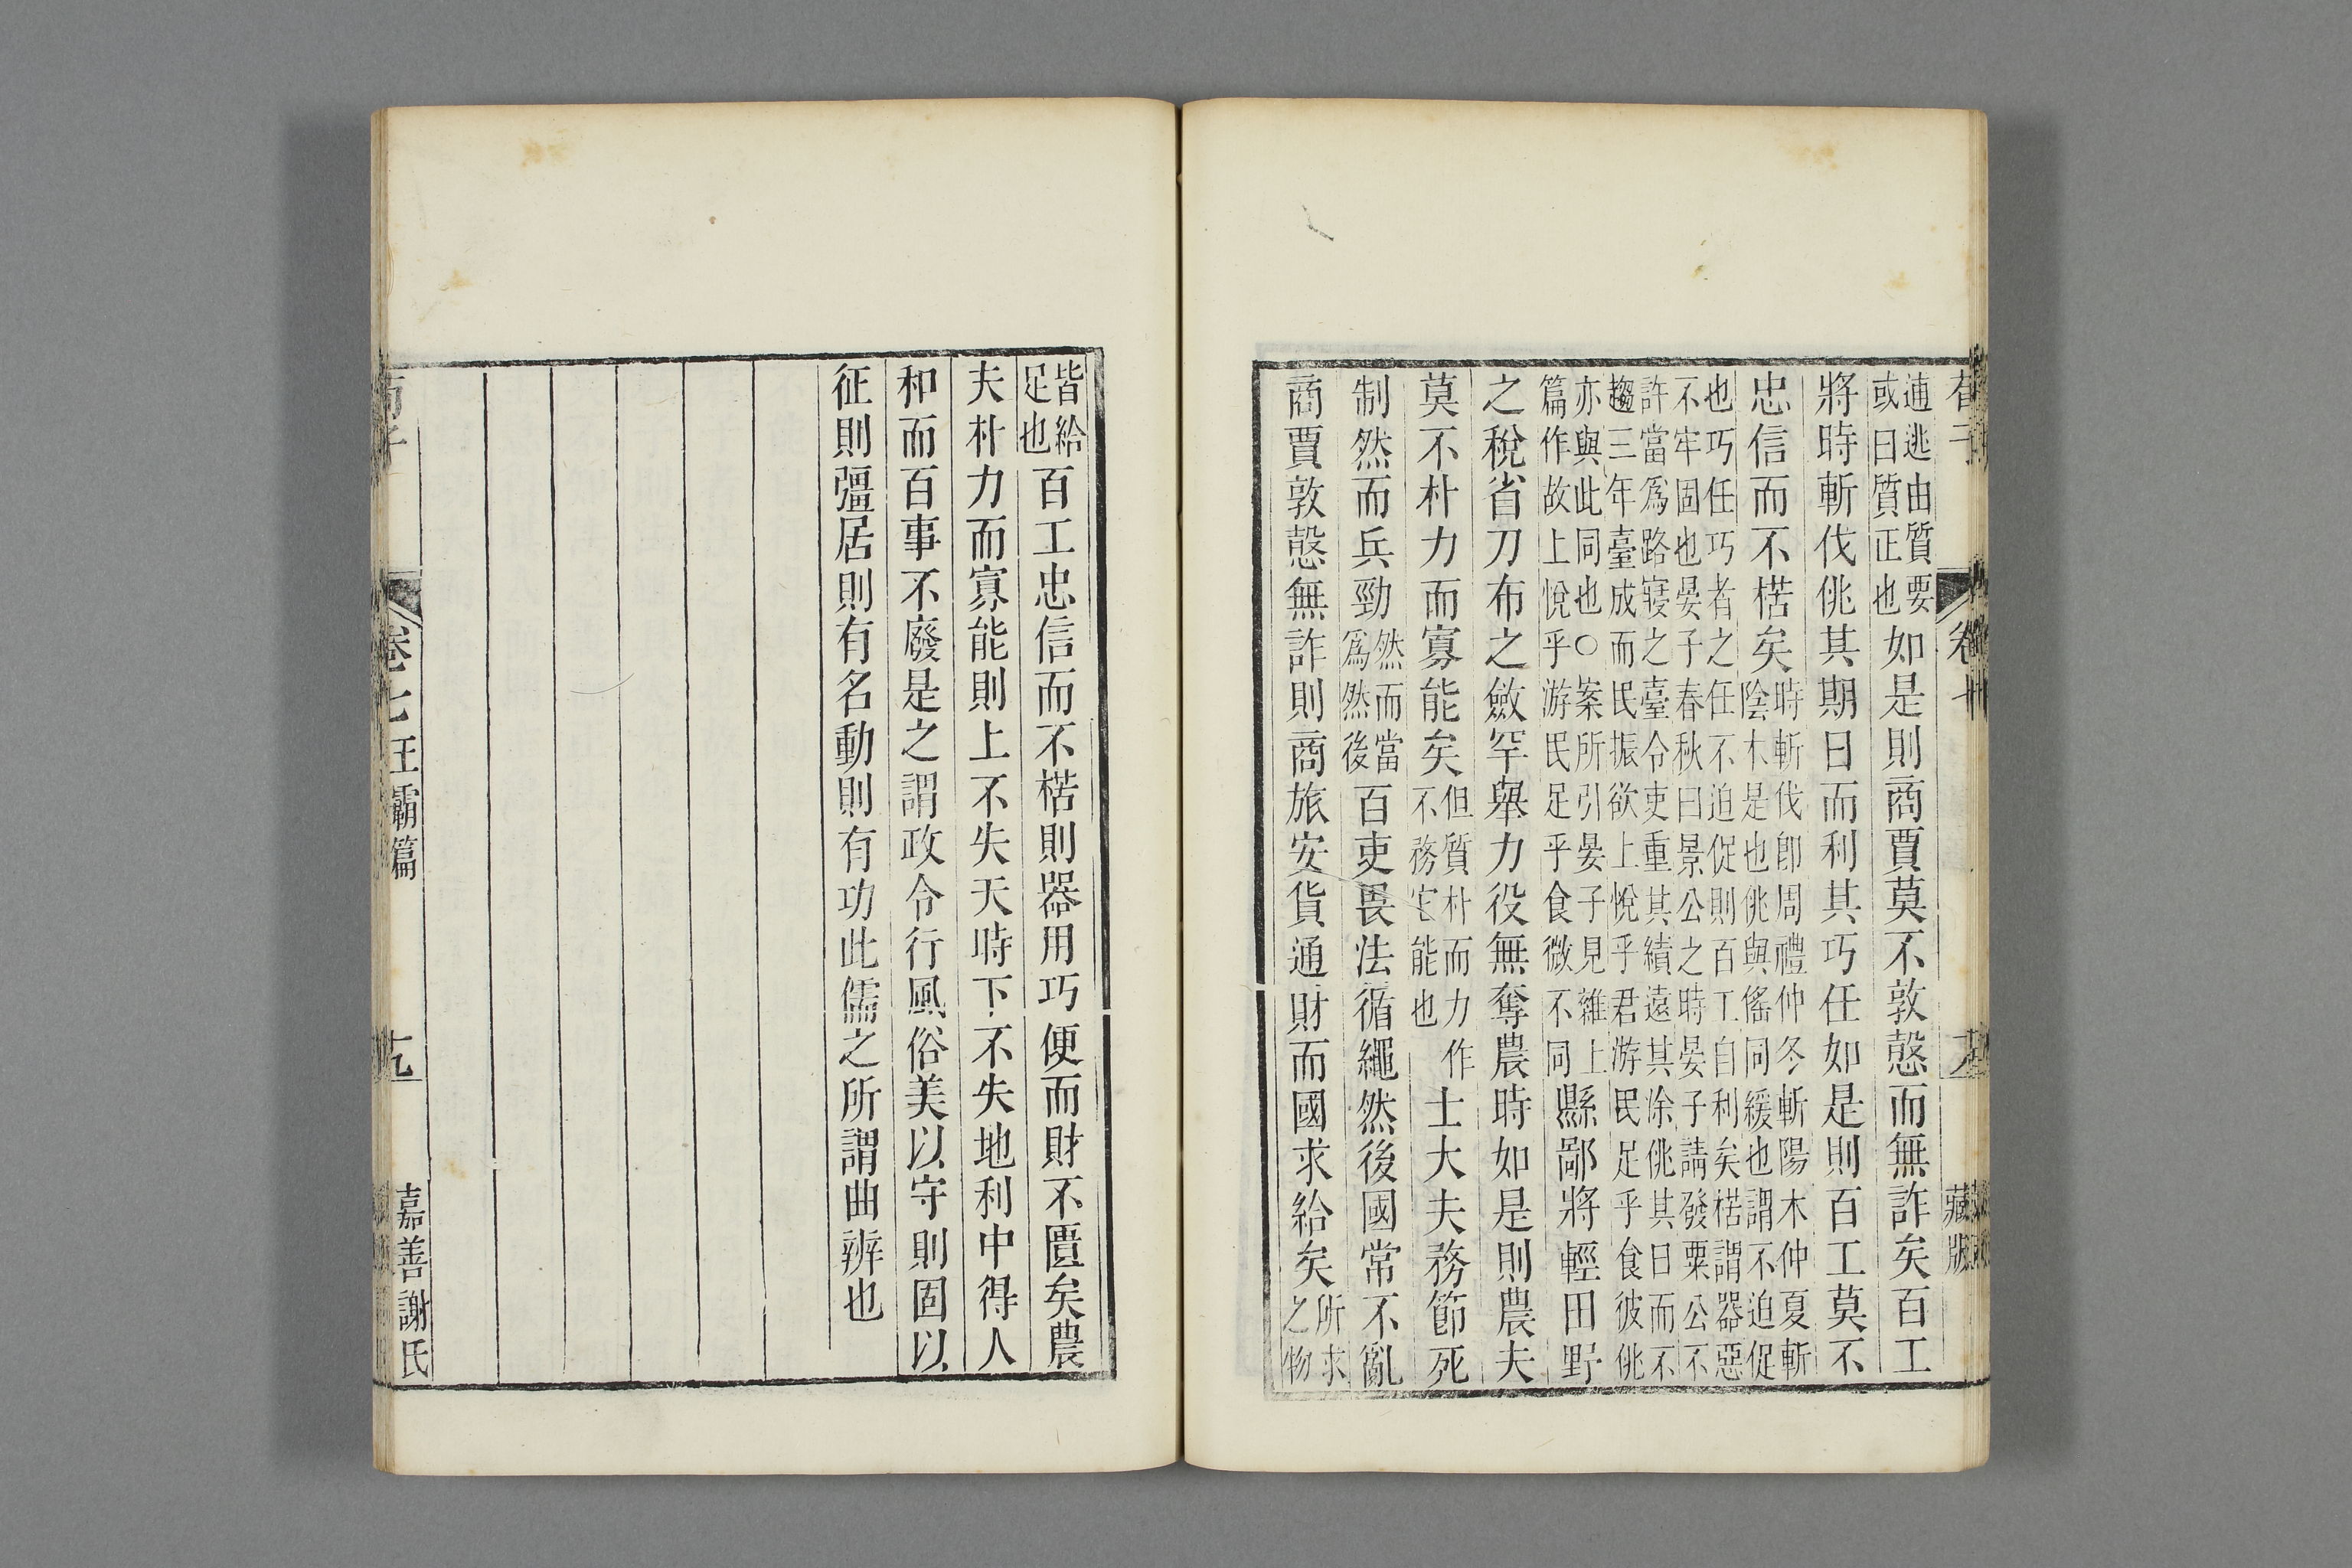 逋逃由質要或曰質正也如是則商賈莫不敦慤而無詐矣百工
將時斬伐佻其期日而利其巧任如是則百工莫不
忠信而不楛矣時斬伐卽周禮仲冬斬陽木仲夏斬陰木是也佻與傜同緩也謂不迫促
也巧任巧者之任不迫促則百工自利矣楛謂器惡不牢固也晏子春秋曰景公之時晏子請發粟公不
許當爲路寢之臺令吏重其績遠其涂佻其日而不趨三年臺成而民振欲上悅乎君游民足乎食彼佻
亦與此同也○案所引晏子見雜上篇作故上悅乎游民足乎食微不同縣鄙將輕田野
之稅省刀布之斂罕舉力役無奪農時如是則農夫
莫不朴力而寡能矣但質朴而力作不務它能也士大夫務節死
制然而兵勁然而當爲然後百吏畏法循繩然後國常不亂
商賈敦慤無詐則商旅安貨通財而國求給矣所求之物
皆給足也百工忠信而不楛則器用巧便而財不匱矣農
夫朴力而寡能則上不失天時下不失地利中得人
和而百事不廢是之謂政令行風俗美以守則固以
征則彊居則有名動則有功此儒之所謂曲辨也
荀子 卷七王霸篇 十九 嘉善謝氏
藏版